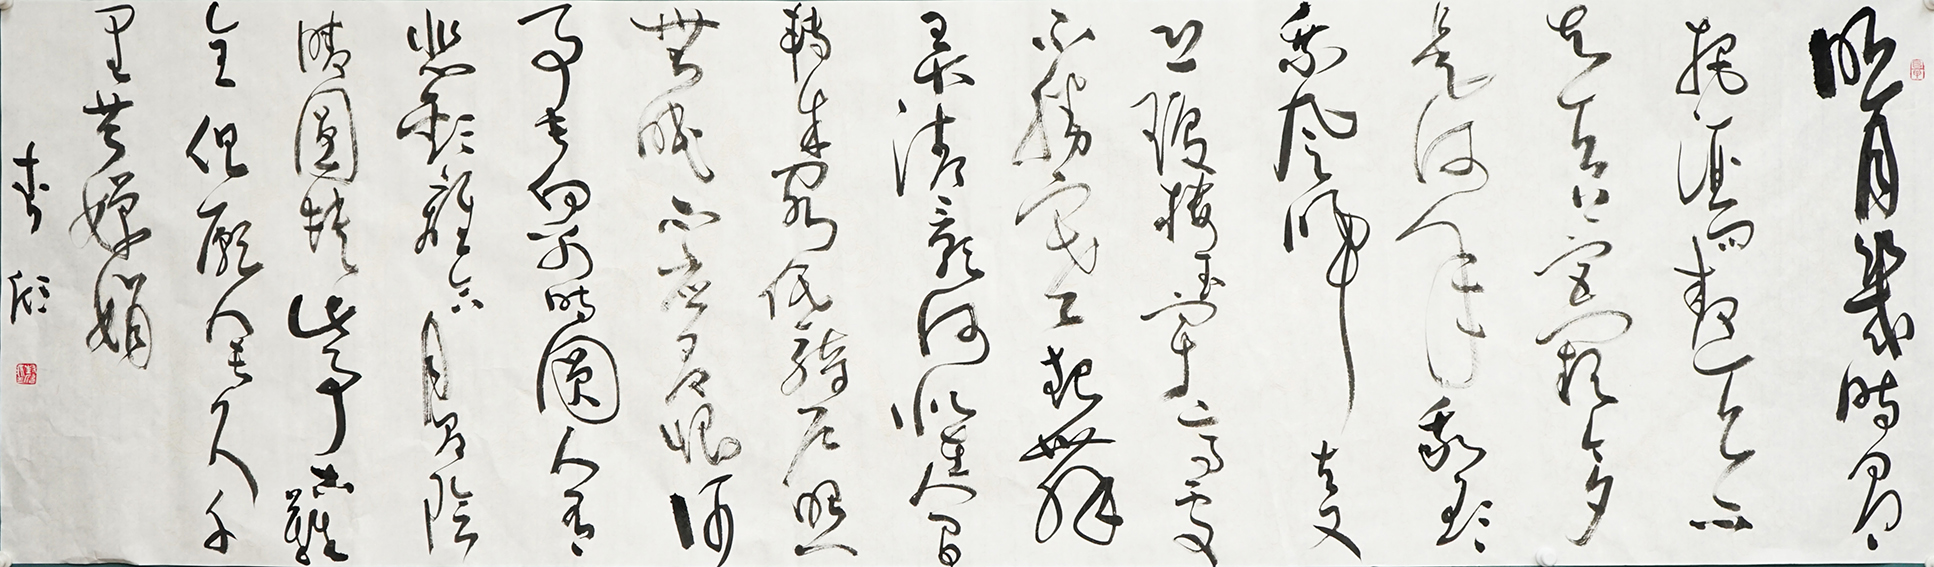 明月幾時有
把酒問青天不
知天上宮闕今夕
是何年我欲
乘風歸去又
恐瓊樓玉宇高處
不勝寒起舞
弄清影何似在人間
轉朱閣低綺戶照
無眠不應有恨何
事長向別時圓人有
悲歡離合月有陰
晴圓缺此事古難
全但願人長久千
里共嬋娟